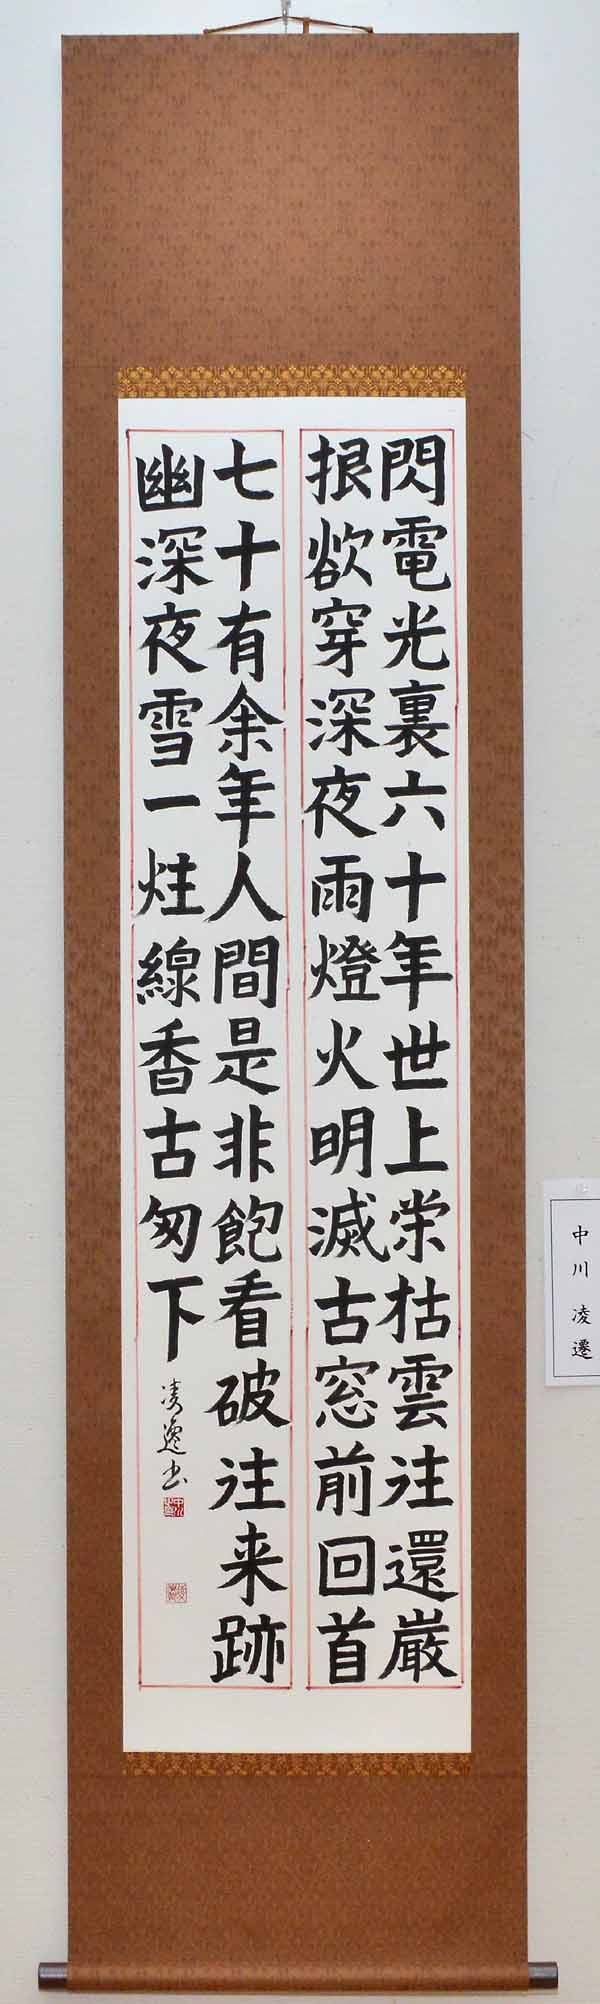 閃電光裏六十年世上栄枯雲往還巌
根欲穿深夜雨燈火明滅古窓前回首
七十有余年人間是非飽看破往来跡
幽深夜雪一炷線香古匆下
凌遷書
中川 凌遷